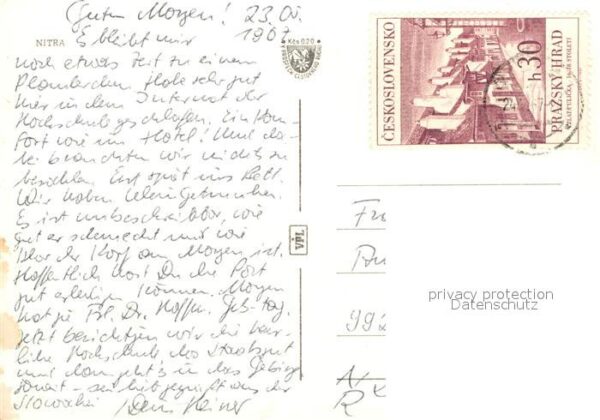 Guten Morgen! 23.05.
1967
NITRA
Es bleibt mir
noch etwas Zeit zu einem
Plauderchen. Habe sehr gut
hier in dem Internat der
Hochschule geschlafen. Ein Kom-
fort wie im Hotel! Und da-
bei brauchten wir nichts zu
bezahlen. Erst spät ins Bett.
Wir haben Wein getrunken.
Es ist unbeschreibbar, wie
gut er schmeckt und wie
klar der Kopf am Morgen ist.
Hoffentlich hast Du die Post
gut erledigen können. Morgen
hat ja Frl. Dr. Hoffm. Geb.tag.
Jetzt besichtigen wir die herr-
liche Hochschule, das Staatsgut
und dann geht's in das Gebirge
sei lieb gegrüßt aus der
Slowakei Dein Heiner
Kčs 0,20
VPL
ČESKOSLOVENSKO
30 h
PRAŽSKÝ HRAD
ZLATÁ ULIČKA, 16.-18. STOLETÍ
Fr
992
privacy protection
Datenschutz